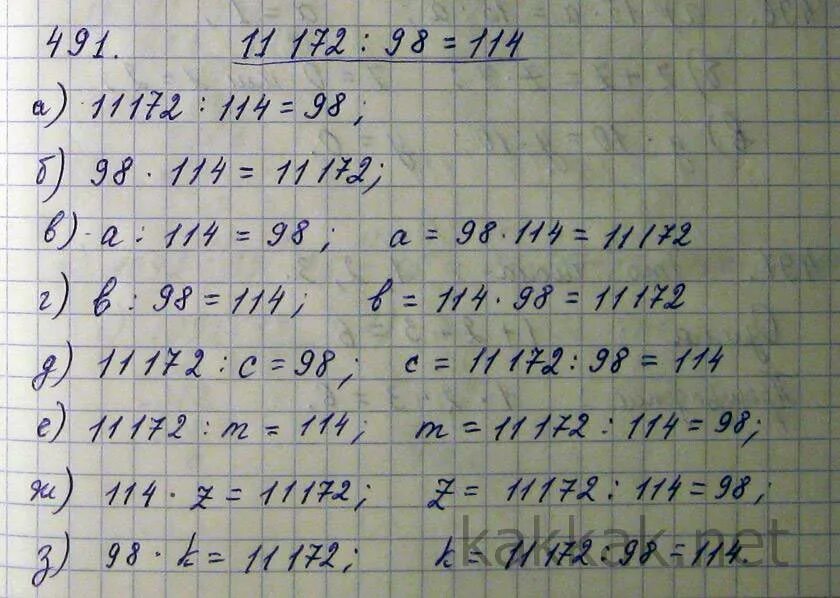 491. 11 172 : 98 = 114
а) 11172 : 114 = 98;
б) 98 · 114 = 11 172;
в) а : 114 = 98; а = 98 · 114 = 11172
г) в : 98 = 114; в = 114 · 98 = 11172
д) 11172 : с = 98; с = 11172 : 98 = 114
е) 11172 : m = 114; m = 11172 : 114 = 98;
ж) 114 · z = 11172; z = 11172 : 114 = 98;
з) 98 · k = 11172; k = 11172 : 98 = 114.
kakkak.net